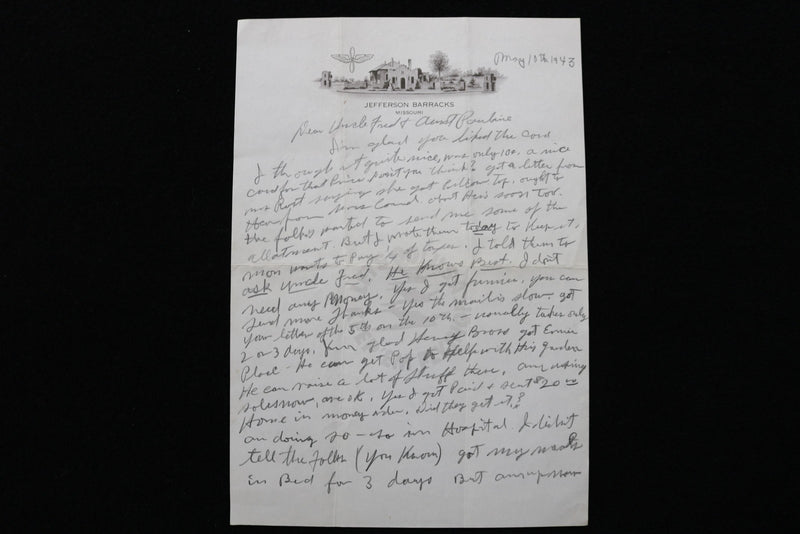 May 10th 1943
JEFFERSON BARRACKS
MISSOURI
Dear Uncle Fred & Aunt Pauline
I'm glad you liked the card
I thought it quite nice, was only 10¢. a nice
card for that Price don't you think? got a letter from
Mrs Rust saying she got Pillow Top. ought to
Hear from Mrs about Hers soon too.
the folks wanted to send me some of the
allotment. But I wrote them today to Keep it.
mom wants to Pay 1/2 of taxes. I told them to
ask Uncle Fred. He Knows Best. I don't
need any Money. Yes I got funnies, you can
send more Thanks - Yes the mail is slow. got
your letter of the 5th on the 10th. - usually takes only
2 or 3 days. I'm glad Henry Bross got Ernie
Place - He can get Pop to Help with His garden
He can raise a lot of stuff there,
are ok. Yes I got Paid & sent $20.00
Home in money order. Did they get it?
am doing so-so in Hospital I didn't
tell the folks (you Know) got my meals
in Bed for 3 days But am up now